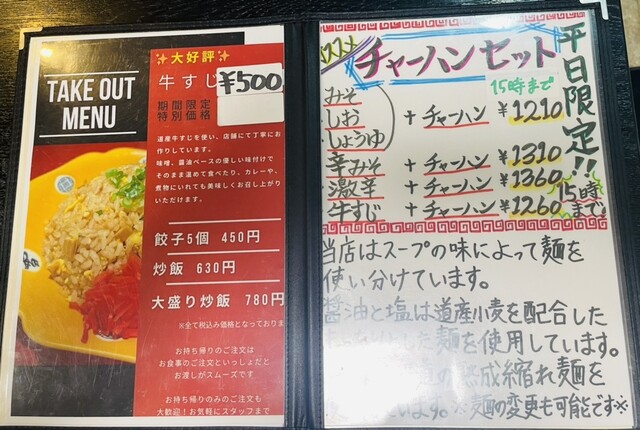 TAKE OUT
MENU
✨大好評✨
牛すじ ¥500
期間限定
特別価格
道産牛すじを使い、店舗にて丁寧にお
作りしています。
味噌、醤油ベースの優しい味付けで
そのまま温めて食べたり、カレーや、
煮物にいれても美味しくお召し上がり
いただけます。
餃子5個 450円
炒飯 630円
大盛り炒飯 780円
※全て税込み価格となっておりま
お持ち帰りのご注文は
お食事のご注文といっしょだと
お渡しがスムーズです
お持ち帰りのみのご注文も
大歓迎!お気軽にスタッフまで
オススメ
チャーハンセット
平日限定!!
15時まで
15時まで
みそ
しお
しょうゆ
+チャーハン ¥1210
辛みそ +チャーハン ¥1310
激辛 +チャーハン ¥1360
牛すじ +チャーハン ¥1260
当店はスープの味によって麺を
使い分けています。
醤油と塩は道産小麦を配合した
麺を使用しています。
熟成縮れ麺を
います。※麺の変更も可能です※